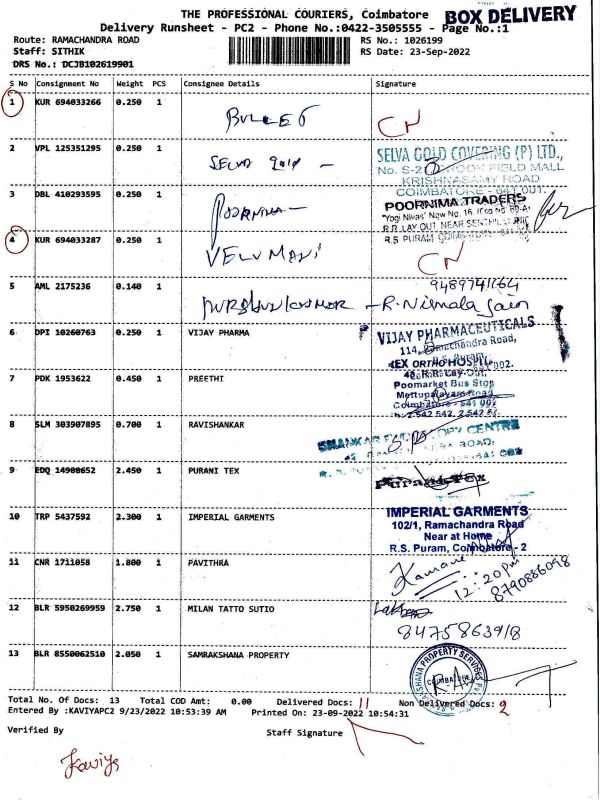 THE PROFESSIONAL COURIERS, Coimbatore
BOX DELIVERY
Delivery Runsheet - PC2 - Phone No.:0422-3505555 - Page No.:1
Route: RAMACHANDRA ROAD
RS No.: 1026199
Staff: SITHIK
RS Date: 23-Sep-2022
DRS No.: DCJB102619901
S No Consignment No Weight PCS Consignee Details Signature
1 KUR 694033266 0.250 1 BULLET CN
2 VPL 125351295 0.250 1 SELVA GOLD
SELVA GOLD COVERING (P) LTD.,
FIELD MALL
KRISHNASAMY ROAD
COIMBATORE - 641 001.
3 DBL 410293595 0.250 1 POORNIMA
POORNIMA TRADERS
"Yogi Nivas" New No. 16
R.R. LAY OUT, NEAR
R.S. PURAM
4 KUR 694033287 0.250 1 VELUMANI CN
5 AML 2175236 0.140 1
R. Nirmala Jain
6 DPI 10260763 0.250 1 VIJAY PHARMA
VIJAY PHARMACEUTICALS
114, Ramachandra Road,
7 PDK 1953622 0.450 1 PREETHI
REX ORTHO HOSPITAL
Poomarket Bus Stop
Mettupalayam Road
8 SLM 303907895 0.700 1 RAVISHANKAR
9 EDQ 14908652 2.450 1 PURANI TEX
Purani Tex
10 TRP 5437592 2.300 1 IMPERIAL GARMENTS
IMPERIAL GARMENTS
102/1, Ramachandra Road
Near at Home
R.S. Puram, Coimbatore - 2
11 CNR 1711058 1.800 1 PAVITHRA
12:20 PM
8790886098
12 BLR 5950269959 2.750 1 MILAN TATTO SUTIO
8475863918
13 BLR 8550062510 2.050 1 SAMRAKSHANA PROPERTY
COIMBATORE
Total No. Of Docs: 13 Total COD Amt: 0.00 Delivered Docs: 11 Non Delivered Docs: 2
Entered By :KAVIYAPC2 9/23/2022 10:53:39 AM Printed On: 23-09-2022 10:54:31
Verified By
Staff Signature
Kaviya